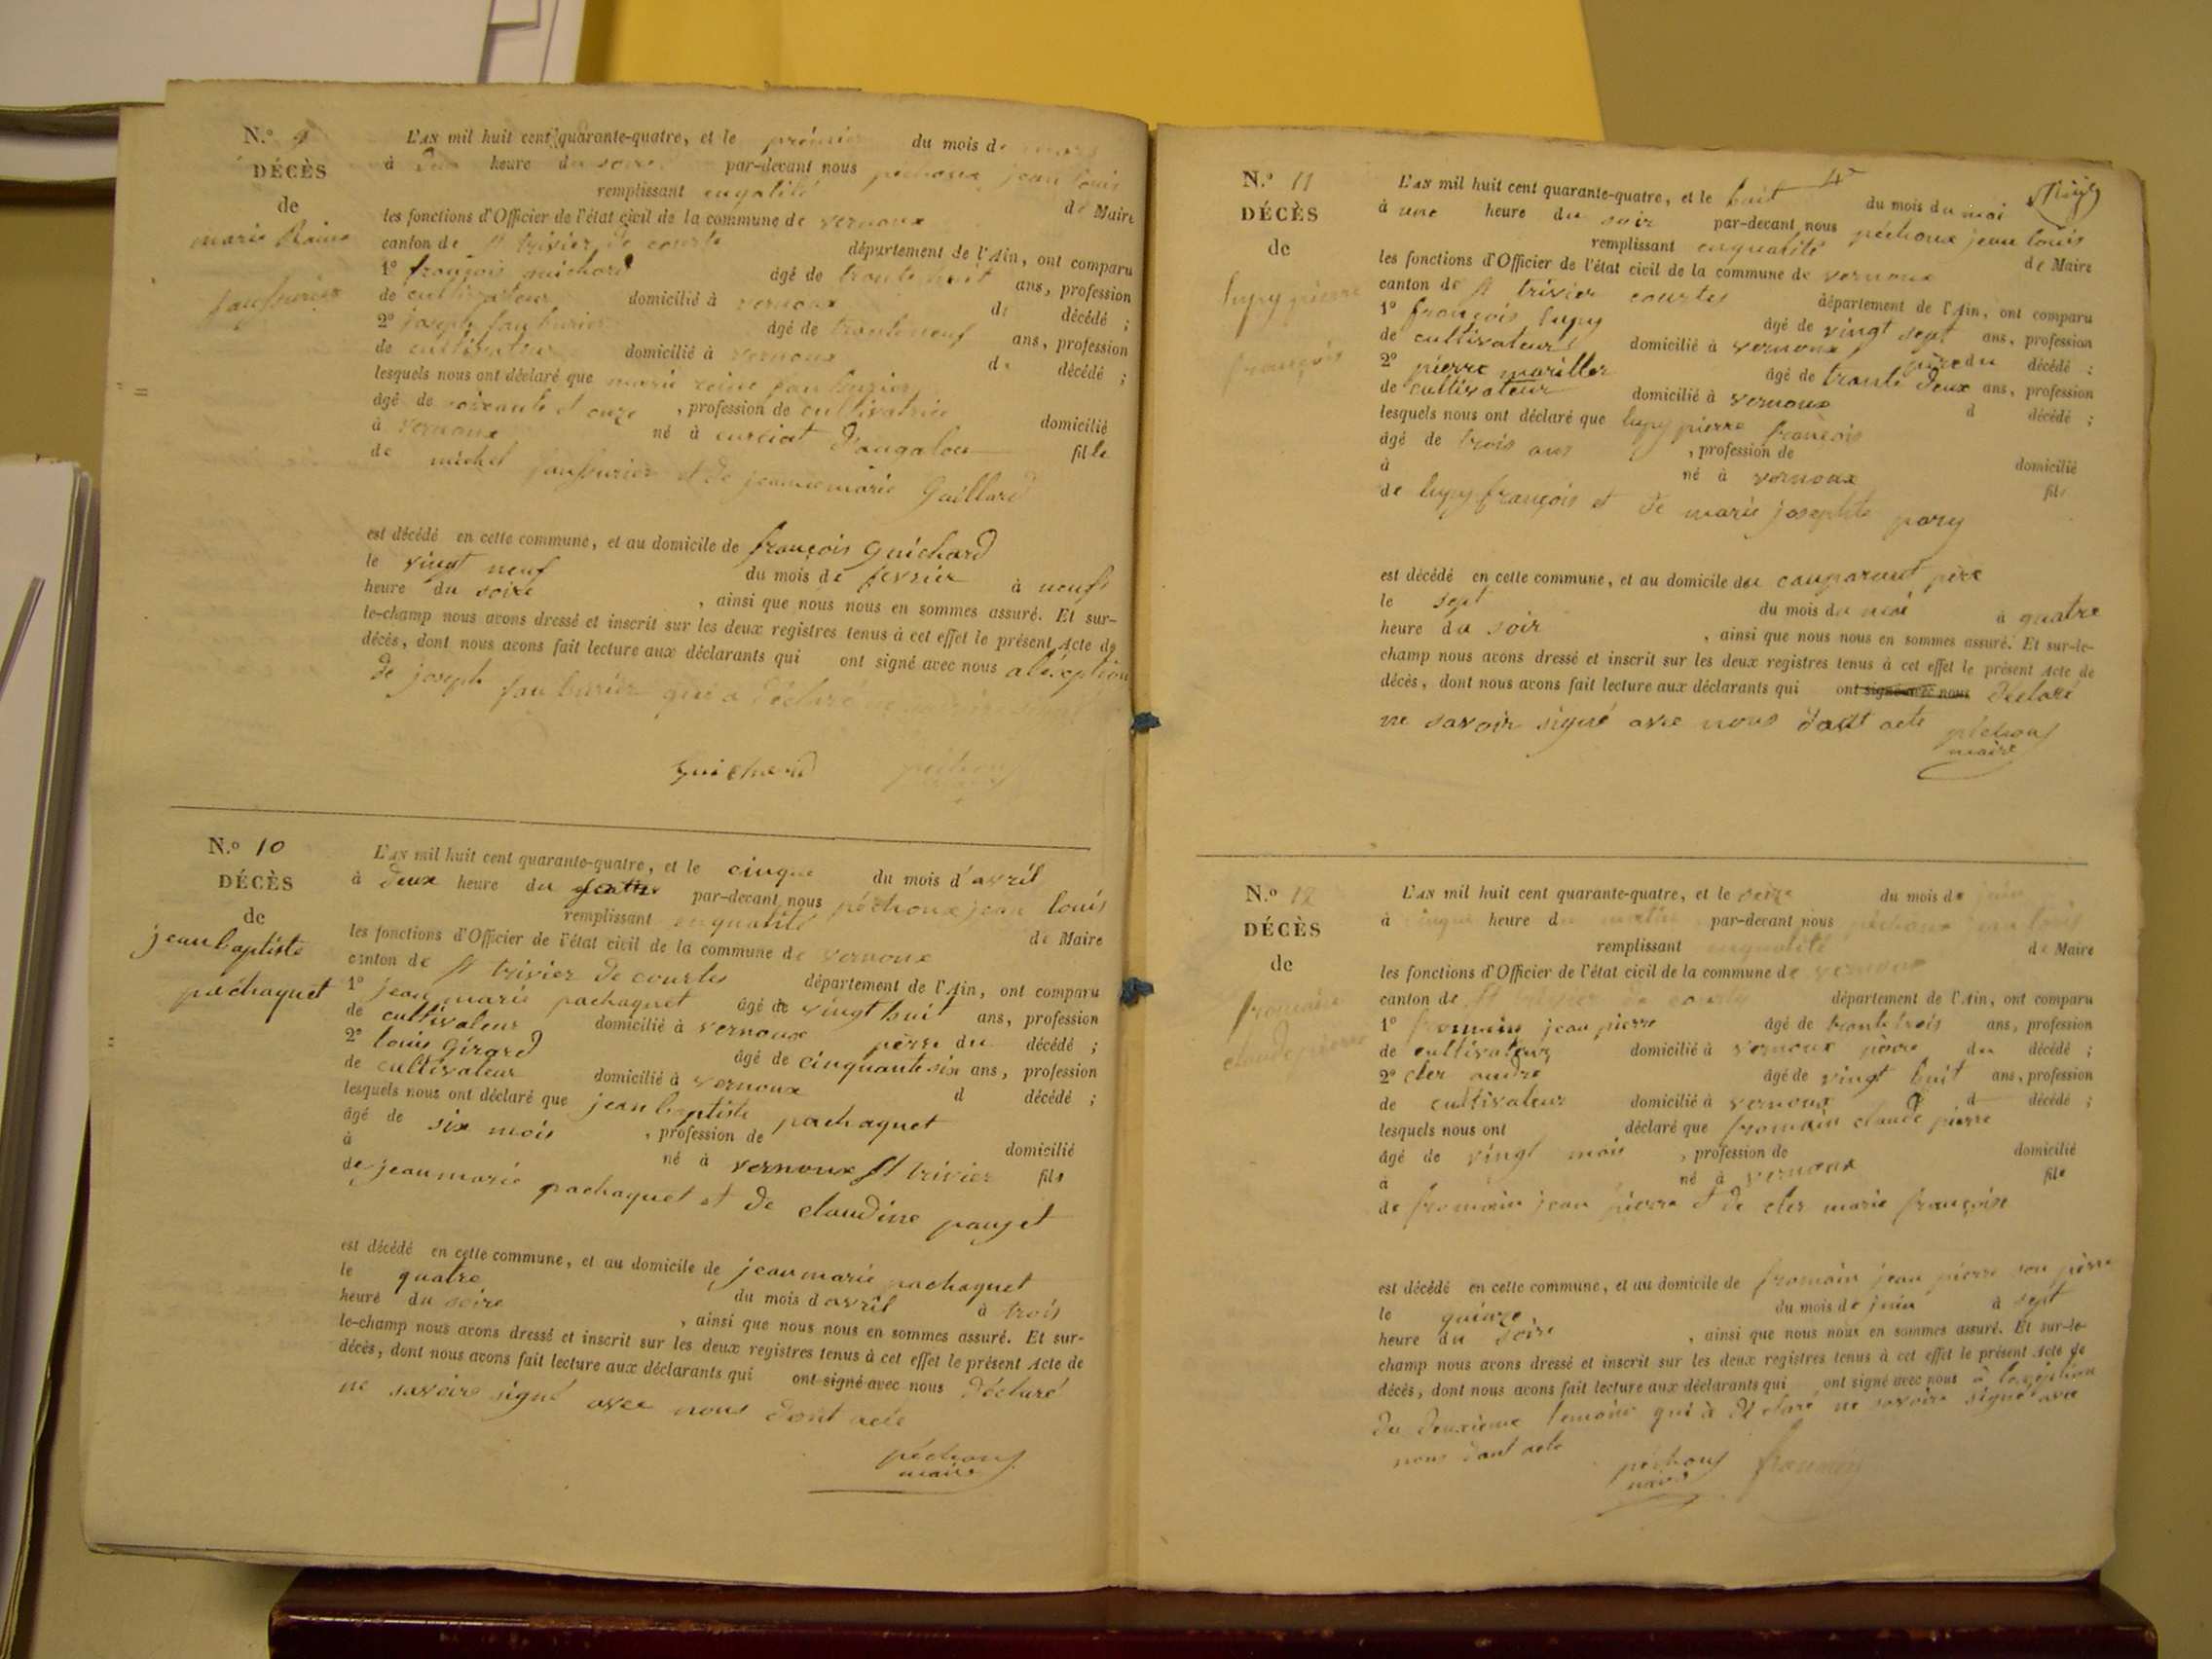 N.º 9
DÉCÈS
de
marie Raine
faussurier
L'AN mil huit cent quarante-quatre, et le prémier du mois de mars
à heure du soire par-devant nous péchoux jean louis
remplissant enqalité de Maire
les fonctions d'Officier de l'état civil de la commune de vernoux
canton de St trivier de courte département de l'Ain, ont comparu
1º françois guichard âgé de trante huit ans, profession
de cultivateur domicilié à vernoux d décédé ;
2º joseph âgé de trante neuf ans, profession
de cultivateur domicilié à vernoux d décédé ;
lesquels nous ont déclaré que marie reine
âgé de soixante et onze , profession de cultivatrice domicilié
à vernoux né à curciat d'ongalon fille
de michel et de jeanne marie Gaillard
est décédé en cette commune, et au domicile de françois Guichard
le vingt neuf du mois de fevrier à neufs
heure du soire , ainsi que nous nous en sommes assuré. Et sur-
le-champ nous avons dressé et inscrit sur les deux registres tenus à cet effet le présent Acte de
décès, dont nous avons fait lecture aux déclarants qui ont signé avec nous aléxption
de joseph qui a déclaré
Guichard péchoux
N.º 10
DÉCÈS
de
jean baptiste
pachaquet
L'AN mil huit cent quarante-quatre, et le cinque du mois d'avril
à deux heure du par-devant nous péchoux jean louis
remplissant enqualité de Maire
les fonctions d'Officier de l'état civil de la commune de vernoux
canton de St trivier de courtes département de l'Ain, ont comparu
1º jean marie pachaquet âgé de vingt huit ans, profession
de cultivateur domicilié à vernoux père du décédé ;
2º louis Girard âgé de cinquante six ans, profession
de cultivateur domicilié à vernoux d décédé ;
lesquels nous ont déclaré que jean baptiste pachaquet
âgé de six mois , profession de domicilié
à né à vernoux St trivier fils
de jean marie pachaquet et de claudine pauget
est décédé en cette commune, et au domicile de jean marie pachaquet
le quatre du mois d avril à trois
heure du soire , ainsi que nous nous en sommes assuré. Et sur-
le-champ nous avons dressé et inscrit sur les deux registres tenus à cet effet le présent Acte de
décès, dont nous avons fait lecture aux déclarants qui ont signé avec nous déclaré
ne savoire signé avec nous dont acte
péchoux
maire
4e
N.º 11
DÉCÈS
de
lupy pierre
françois
L'AN mil huit cent quarante-quatre, et le huit du mois du mai
à une heure du soir par-devant nous péchoux jean louis
remplissant enqualité de Maire
les fonctions d'Officier de l'état civil de la commune de vernoux
canton de St trivier courtes département de l'Ain, ont comparu
1º françois lupy âgé de vingt sept ans, profession
de cultivateur domicilié à vernoux père du décédé ;
2º pierre mariller âgé de trante deux ans, profession
de cultivateur domicilié à vernoux d décédé ;
lesquels nous ont déclaré que lupy pierre françois
âgé de trois ans , profession de domicilié
à né à vernoux fils
de lupy françois et de marie josephte pary
est décédé en cette commune, et au domicile du comparant père
le sept du mois du mai à quatre
heure du soir , ainsi que nous nous en sommes assuré. Et sur-le-
champ nous avons dressé et inscrit sur les deux registres tenus à cet effet le présent Acte de
décès, dont nous avons fait lecture aux déclarants qui ont signé avec nous déclaré
ne savoir signé avec nous dont acte péchoux
maire
N.º 12
DÉCÈS
de
fromain
claude pierre
L'AN mil huit cent quarante-quatre, et le seize du mois de juin
à cinque heure du matin par-devant nous péchoux jean louis
remplissant enqualité de Maire
les fonctions d'Officier de l'état civil de la commune de vernoux
canton de St trivier de courtes département de l'Ain, ont comparu
1º fromain jean pierre âgé de trante trois ans, profession
de cultivateur domicilié à vernoux père du décédé ;
2º cler andré âgé de vingt huit ans, profession
de cultivateur domicilié à vernoux d décédé ;
lesquels nous ont déclaré que fromain claude pierre
âgé de vingt mois , profession de domicilié
à né à vernoux fils
de fromain jean pierre et de cler marie françoise
est décédé en cette commune, et au domicile de fromain jean pierre son père
le quinze du mois de juin à sept
heure du soire , ainsi que nous nous en sommes assuré. Et sur-le-
champ nous avons dressé et inscrit sur les deux registres tenus à cet effet le présent Acte de
décès, dont nous avons fait lecture aux déclarants qui ont signé avec nous à lexeption
du deuxieme temoins qui à déclaré ne savoire signé avec
nous dont acte
péchoux fromain
maire